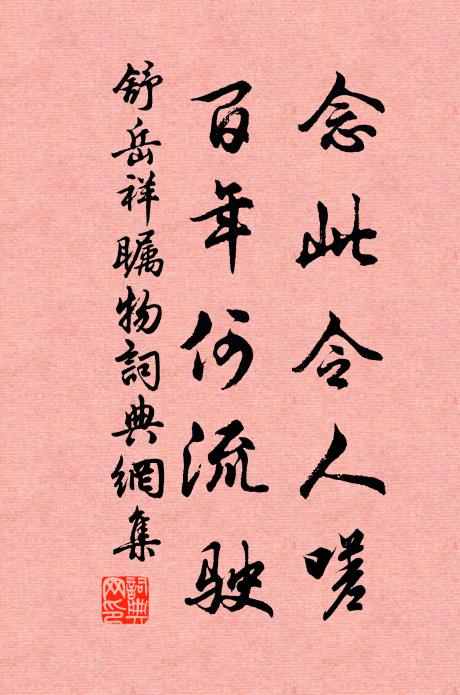 念此令人嗟
百年何流駛
舒岳祥瞩物詞典網集
詞典網印